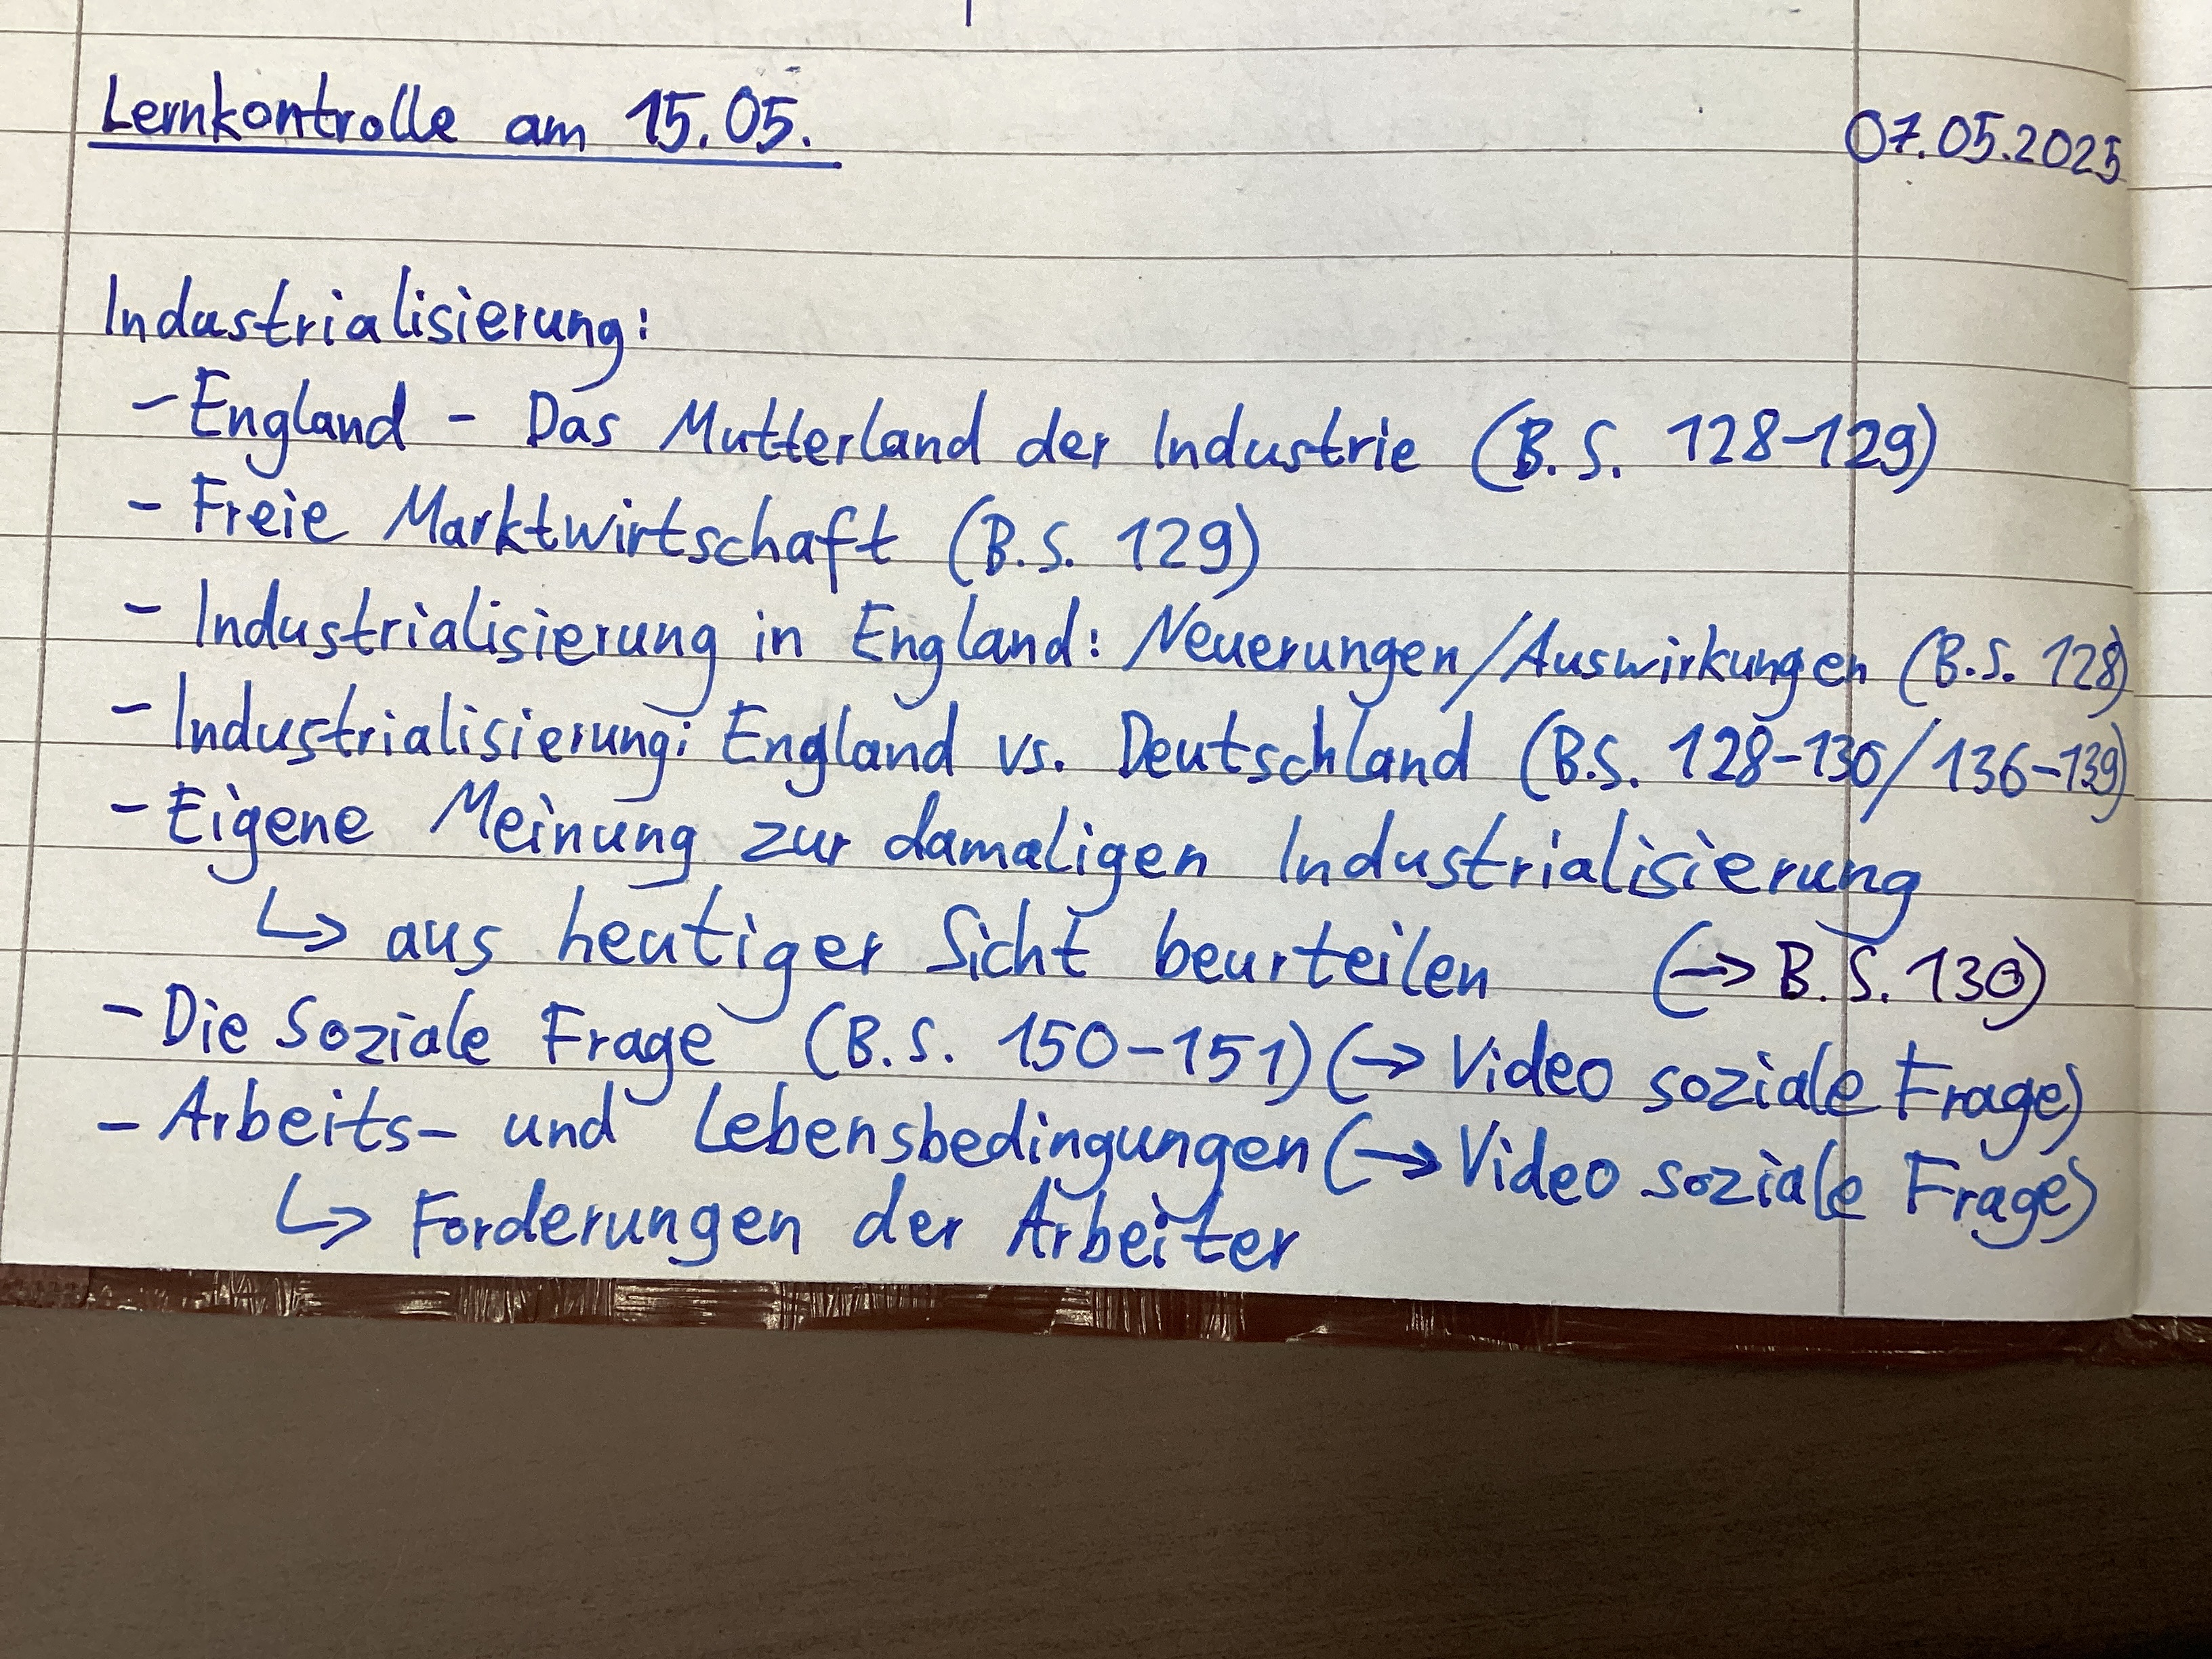 Lernkontrolle am 15.05.
07.05.2025
Industrialisierung:
- England - Das Mutterland der Industrie (B.S. 128-129)
- Freie Marktwirtschaft (B.S. 129)
- Industrialisierung in England: Neuerungen/Auswirkungen (B.S. 128)
- Industrialisierung: England vs. Deutschland (B.S. 128-130/136-139)
- Eigene Meinung zur damaligen Industrialisierung
↳ aus heutiger Sicht beurteilen (→ B.S. 130)
- Die Soziale Frage (B.S. 150-151) (→ Video soziale Frage)
- Arbeits- und Lebensbedingungen (→ Video soziale Frage)
↳ Forderungen der Arbeiter